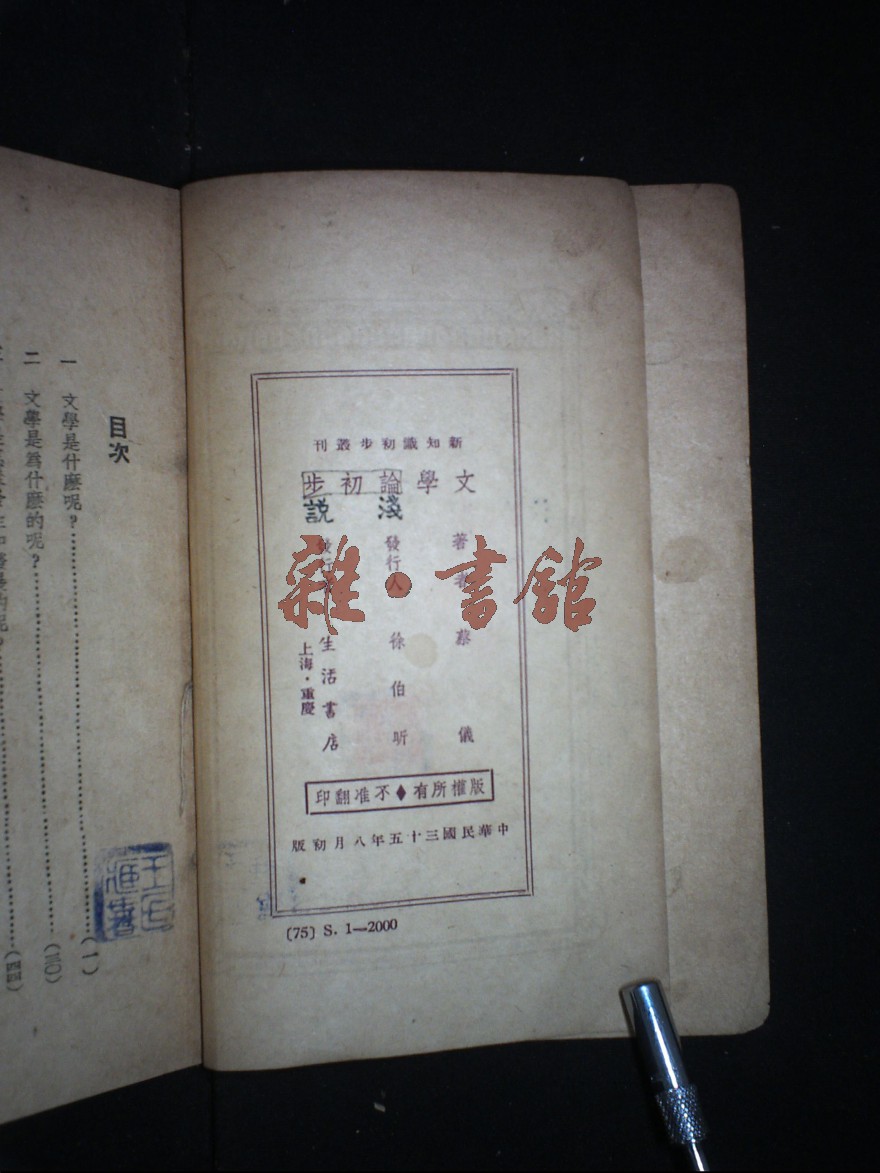 新知識初步叢刊
文學論初步
淺說
著者 蔡儀
發行人 徐伯昕
發行所 生活書店
上海・重慶
版權所有♦不准翻印
中華民國三十五年八月初版
(75) S. 1—2000
目次
一 文學是什麼呢?……(一)
二 文學是爲什麼的呢?……
雜・書館